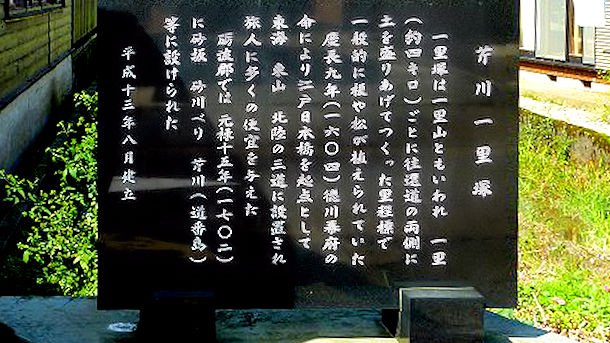 芹川一里塚
一里塚は一里山ともいわれ 一里
(約四キロ)ごとに往還道の両側に
土を盛りあげてつくった里程標で
一般的に榎や松が植えられていた
慶長九年(一六〇四)徳川幕府の
命により江戸日本橋を起点として
東海 東山 北陸の三道に設置され
旅人に多くの便宜を与えた
砺波郡では 元禄十五年(一七〇二)
に砂坂 砂川べり 芹川(道番島)
等に設けられた
平成十三年八月建立